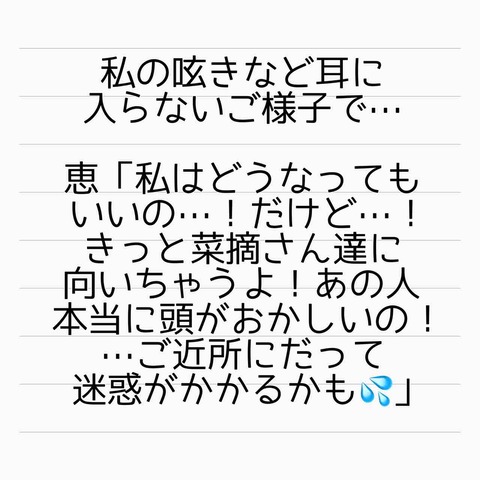 私の呟きなど耳に
入らないご様子で…
恵「私はどうなっても
いいの…！だけど…！
きっと菜摘さん達に
向いちゃうよ！あの人
本当に頭がおかしいの！
…ご近所にだって
迷惑がかかるかも💦」